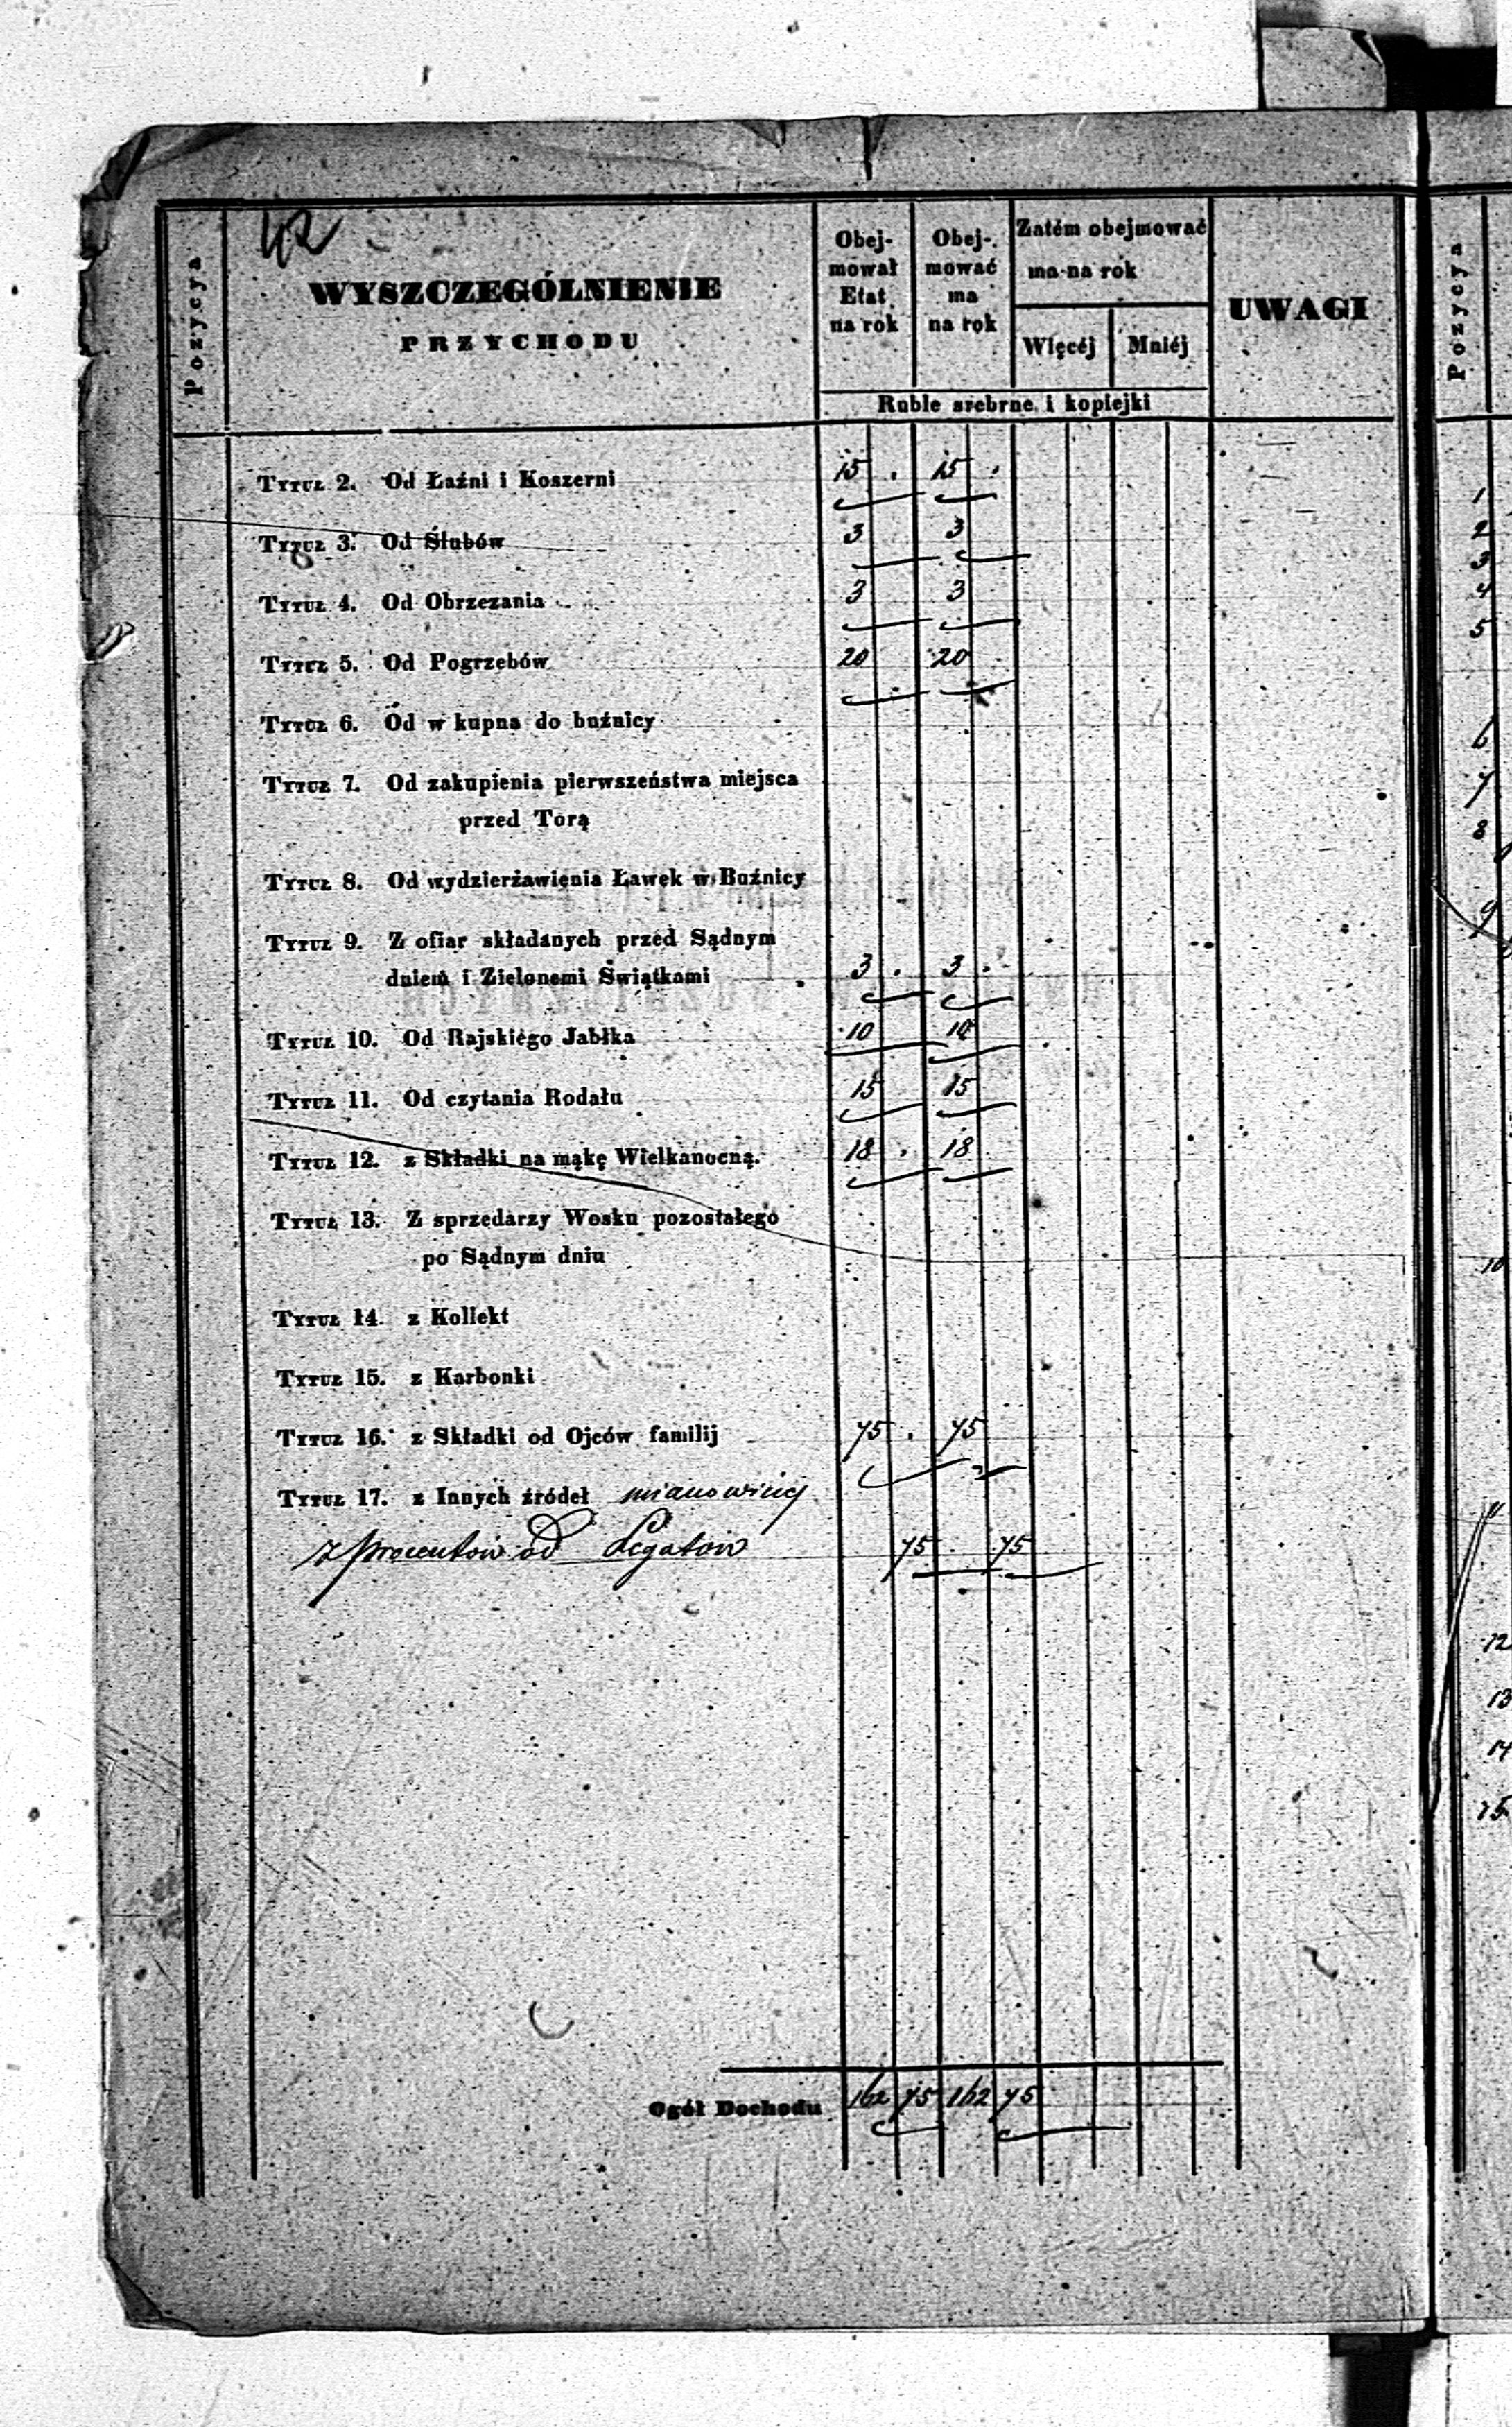 42
Pozycya
WYSZCZEGÓLNIENIE
PRZYCHODU
Obej-
mował
Etat
na rok
Obej-
mować
ma
na rok
Zatém obejmować
ma na rok
Więcéj Mniéj
Ruble srebrne i kopiejki
UWAGI
Tytuł 2. Od Łaźni i Koszerni 15 . 15 .
Tytuł 3. Od Ślubów 3 3
Tytuł 4. Od Obrzezania 3 3
Tytuł 5. Od Pogrzebów 20 20
Tytuł 6. Od w kupna do buźnicy
Tytuł 7. Od zakupienia pierwszeństwa miejsca
przed Torą
Tytuł 8. Od wydzierżawienia Ławek w Buźnicy
Tytuł 9. Z ofiar składanych przed Sądnym
dniem i Zielonemi Świątkami 3 . 3 .
Tytuł 10. Od Rajskiégo Jabłka 10 10
Tytuł 11. Od czytania Rodału 15 15
Tytuł 12. z Składki na mąkę Wielkanocną. 18 . 18
Tytuł 13. Z sprzedarzy Wosku pozostałego
po Sądnym dniu
Tytuł 14. z Kollekt
Tytuł 15. z Karbonki
Tytuł 16. z Składki od Ojców familij 75 . 75
Tytuł 17. z Innych źródeł mianowicie
z procentów od Legatów 75 75
Ogół Dochodu 162 75 162 75
Pozycya
1
2
3
4
5
6
7
8
9
10
11
12
13
14
15